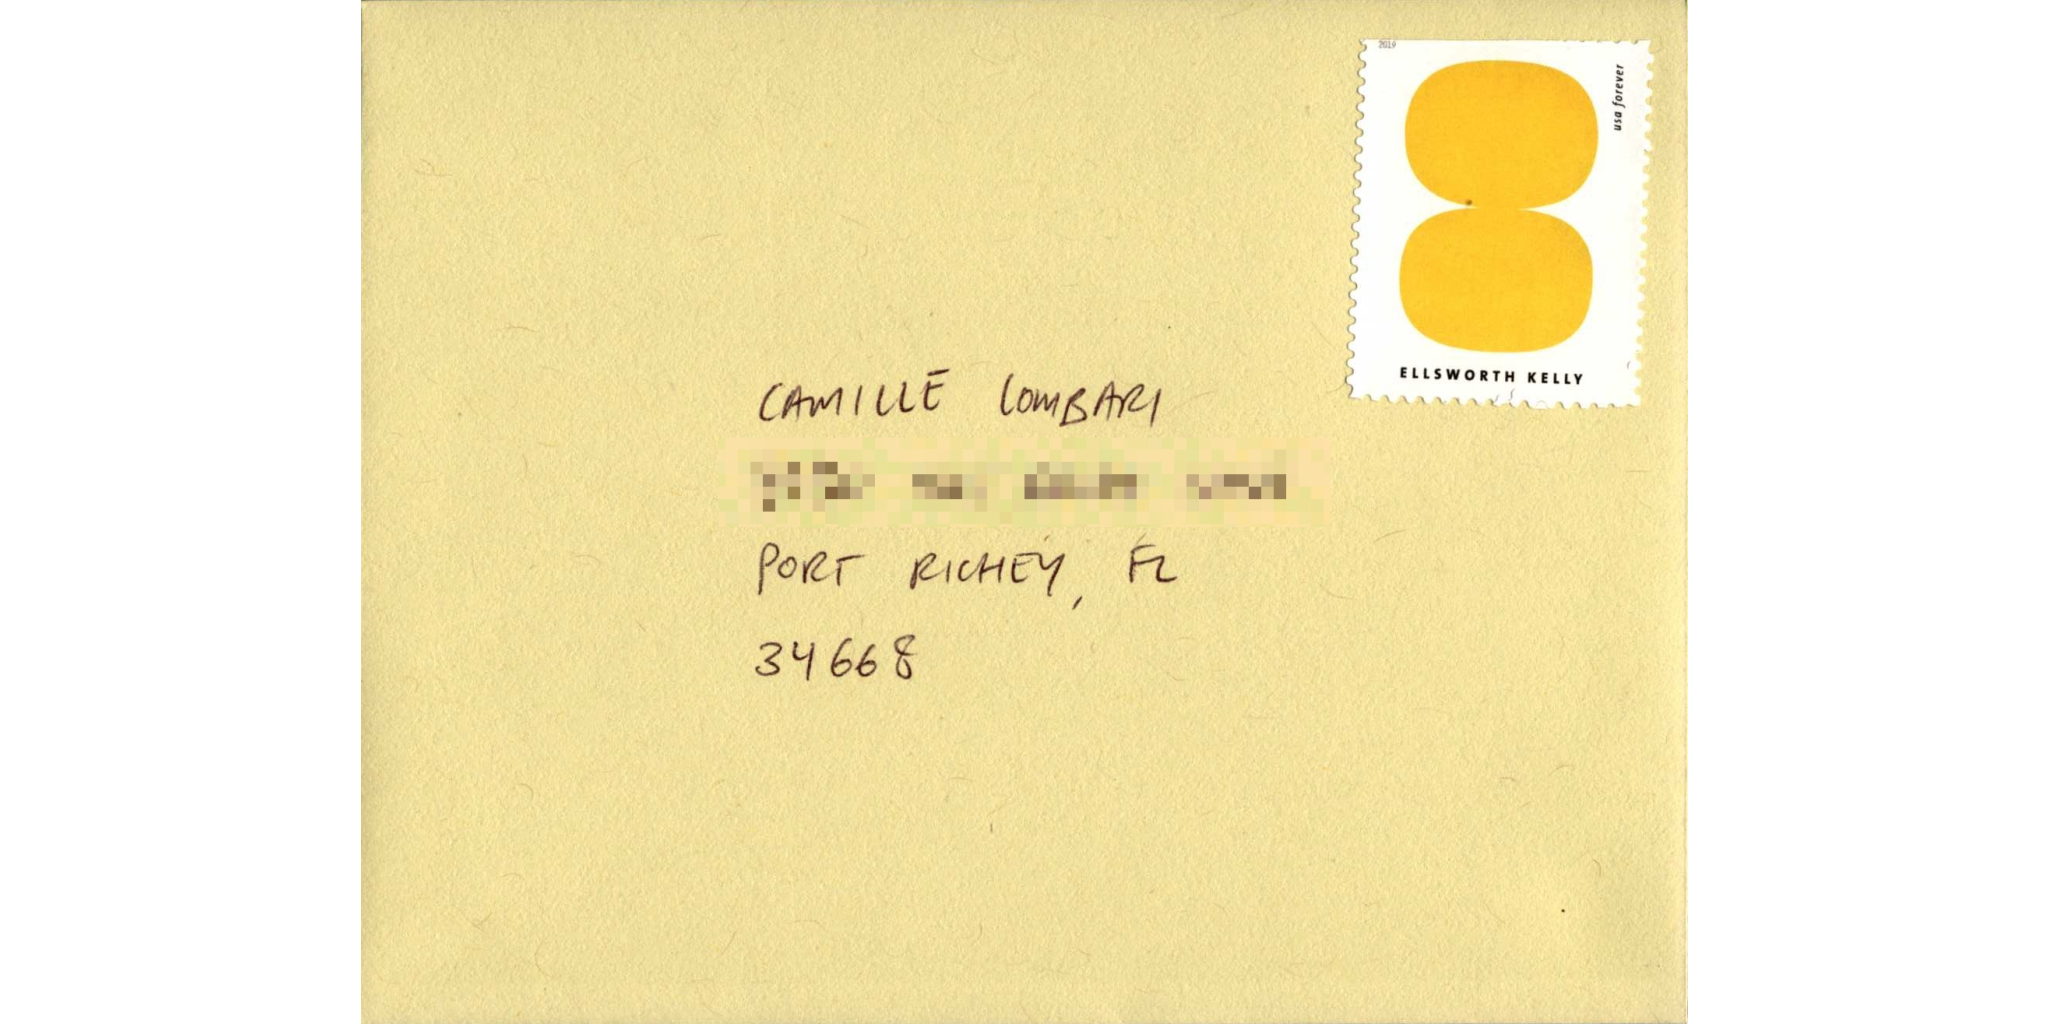 2019
usa forever
ELLSWORTH KELLY
CAMILLE LOMBARI
PORT RICHEY, FL
34668